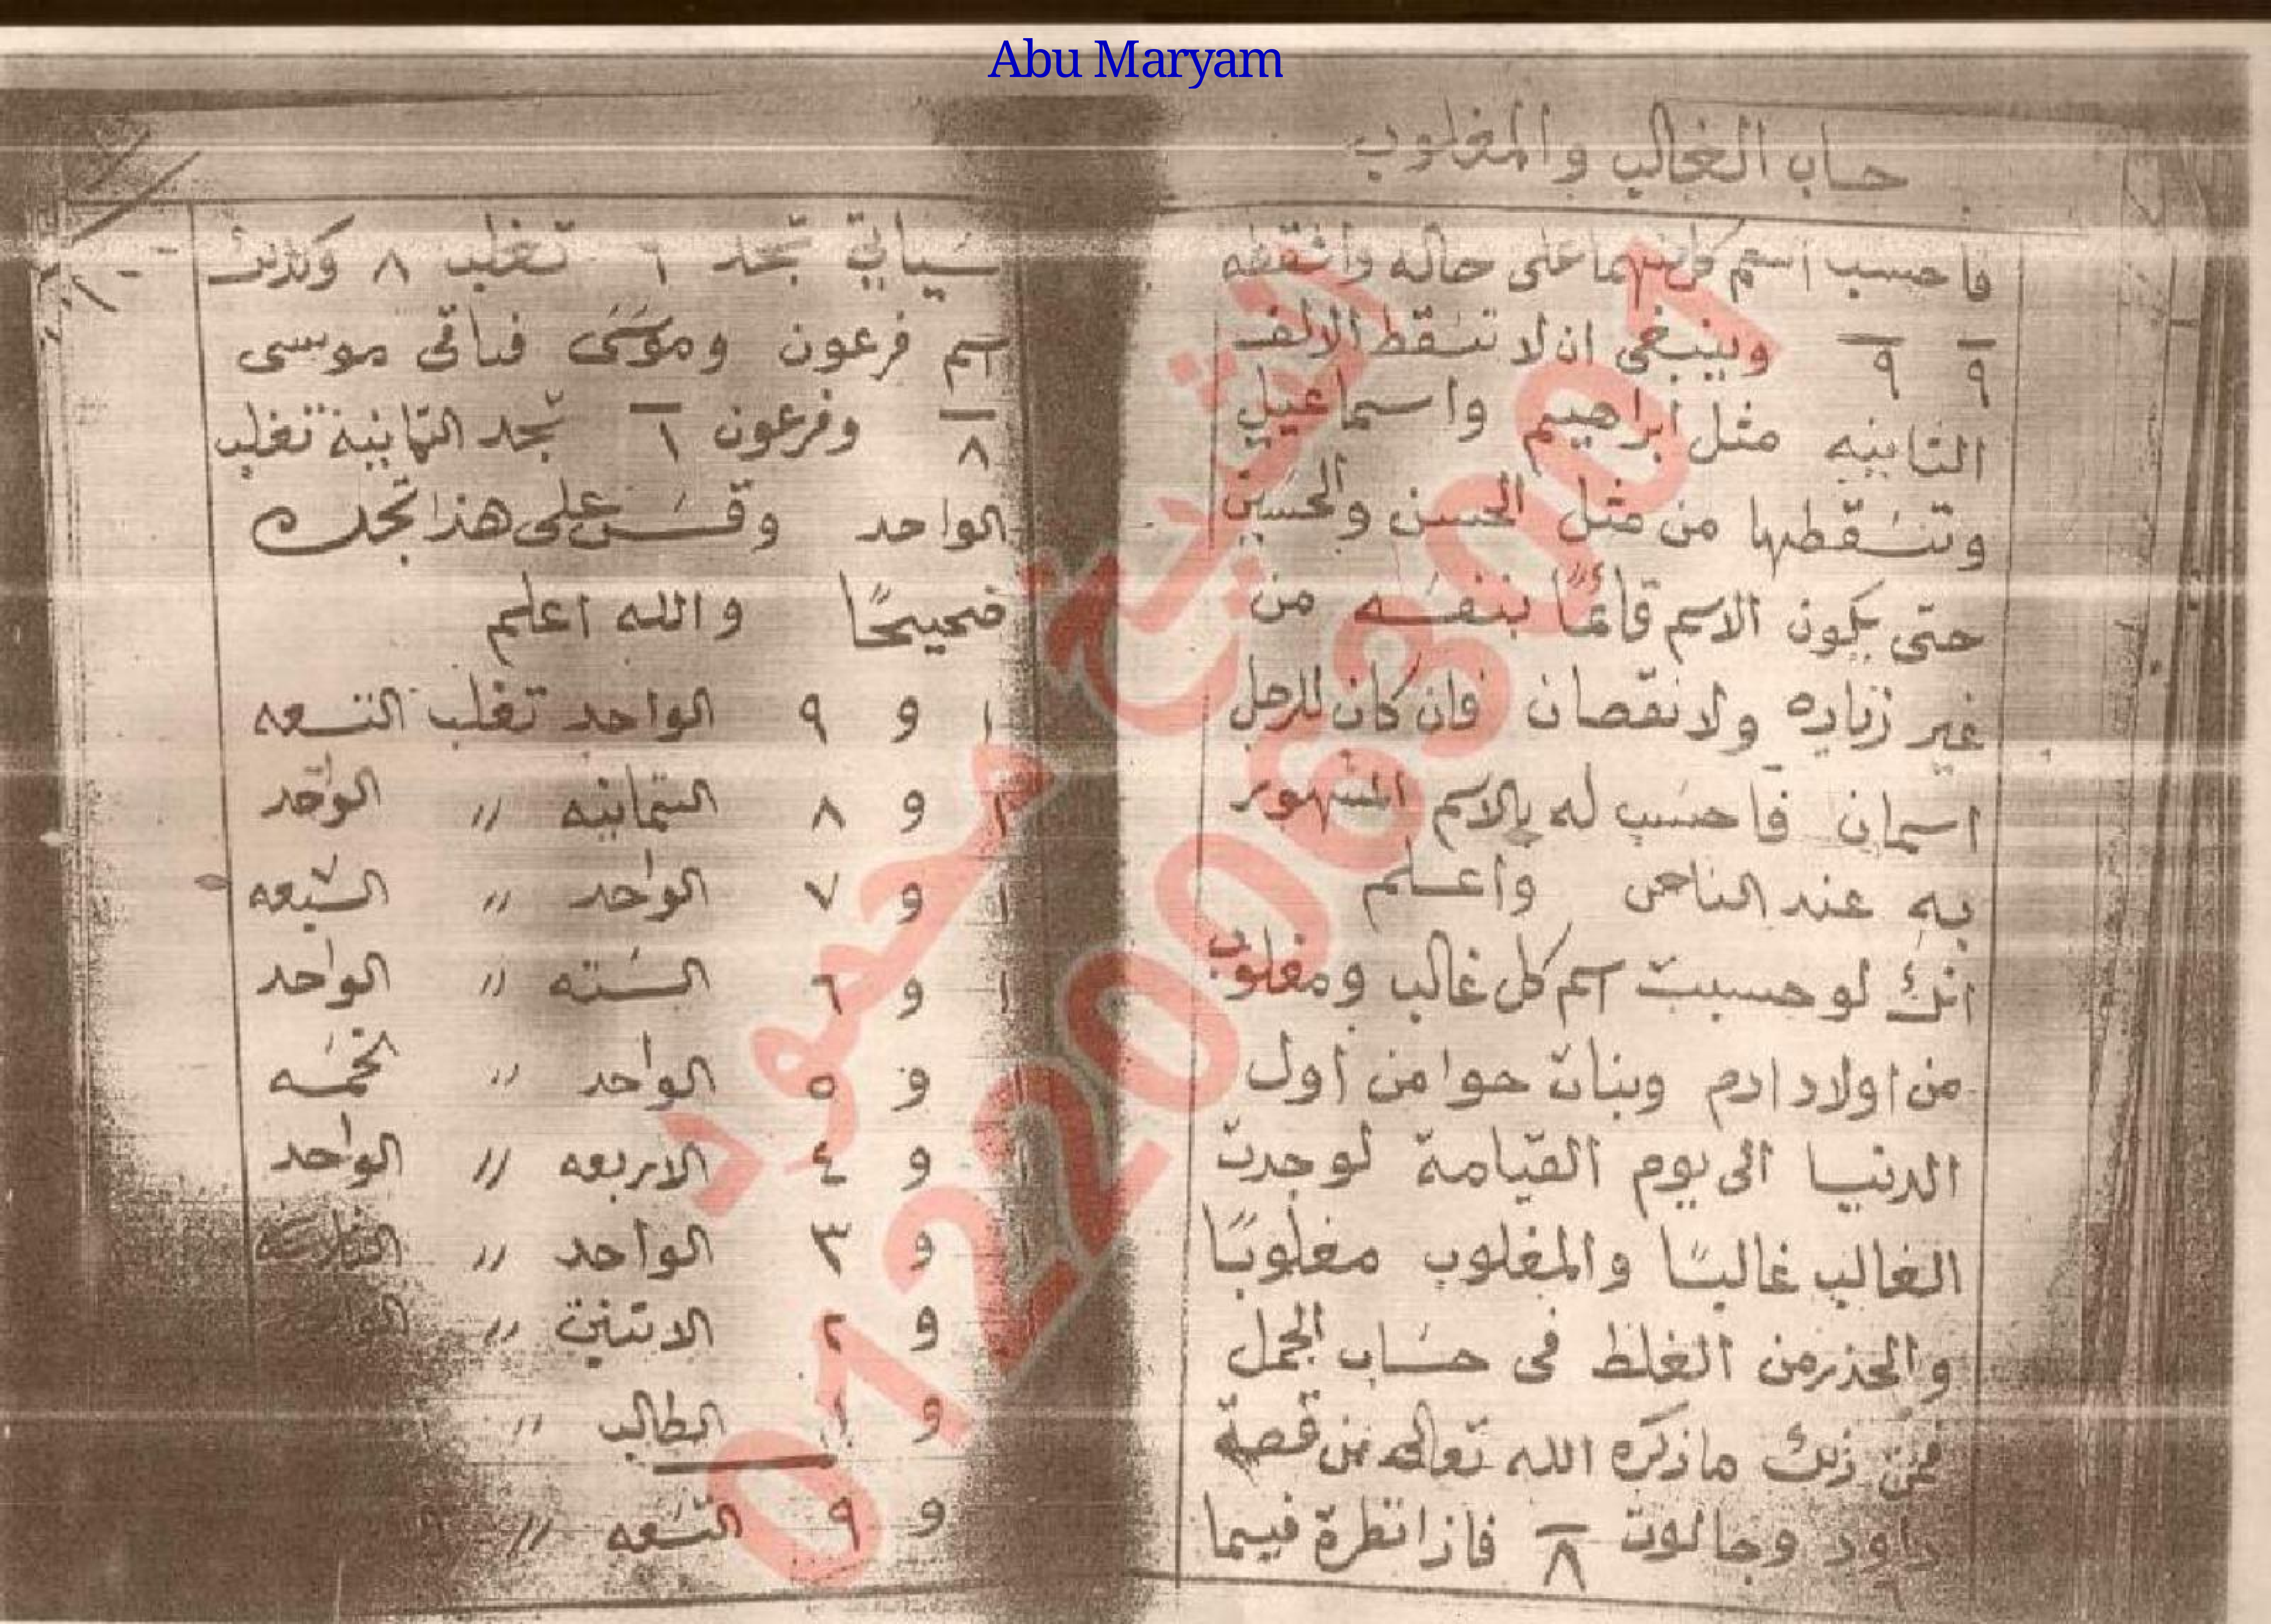 Abu Maryam
حساب الغالب والمغلوب
فاحسب اسم كل منهما على حاله واسقطه
٩ ٩ وينبغى ان لا تسقط الالف
الثانيه مثل ابراهيم واسماعيل
وتسقطها من مثل الحسن والحسين
حتى يكون الاسم قائمًا بنفسه من
غير زياده ولا نقصان فان كان للرجل
اسمان فاحسب له بالاسم المشهور
به عند الناس واعلم
انك لو حسبت اسم كل غالب ومغلوب
من اولاد ادم وبنات حوا من اول
الدنيا الى يوم القيامة لوجدت
الغالب غالبًا والمغلوب مغلوبًا
والحذر من الغلط فى حساب الجمل
فمن ذلك ما ذكره الله تعالى من قصة
داود وجالوت ٨ فاذا نظرة فيما
٦
سياتي تجد ٦ تغلب ٨ وكذلك
اسم فرعون وموسى فباقى موسى
٨ وفرعون ١ تجد الثمانيه تغلب
الواحد وقس على هذا تجده
صحيحًا والله اعلم
١ و ٩ الواحد تغلب التسعه
١ و ٨ الثمانيه " الواحد
١ و ٧ الواحد " السبعه
١ و ٦ السته " الواحد
١ و ٥ الواحد " الخمسه
و ٤ الاربعه " الواحد
١ و ٣ الواحد " الثلاثه
و ٢ الاثنين "
و ١ الطالب "
و ٩ التسعه "
الشيخ محمود